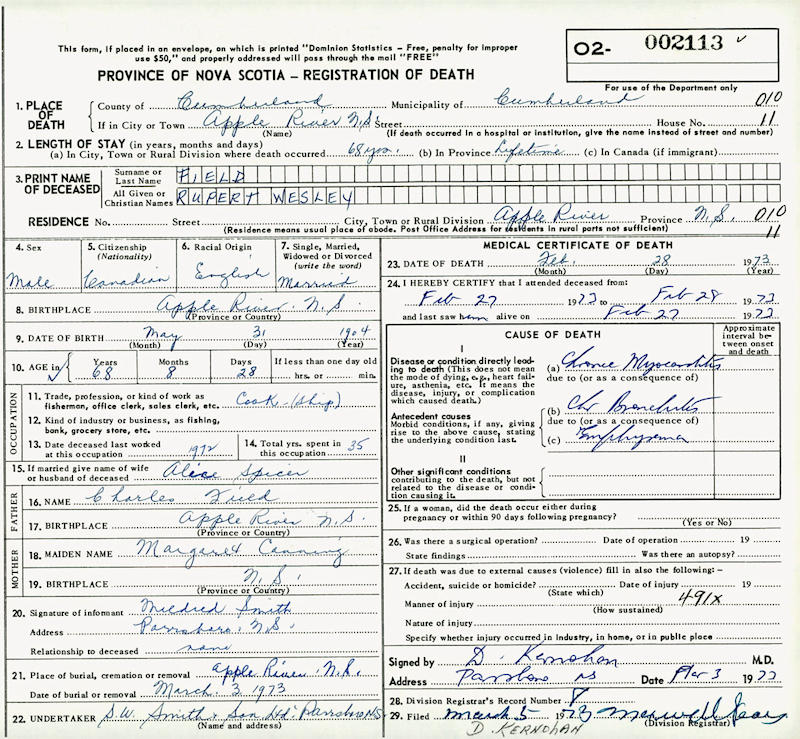 This form, if placed in an envelope, on which is printed "Dominion Statistics – Free, penalty for improper
use $50," and properly addressed will pass through the mail "FREE"
PROVINCE OF NOVA SCOTIA – REGISTRATION OF DEATH
O2- 002113
For use of the Department only
1. PLACE OF DEATH County of Cumberland Municipality of Cumberland 010
If in City or Town Apple River N.S. Street House No. 11
(Name) (If death occurred in a hospital or institution, give the name instead of street and number)
2. LENGTH OF STAY (in years, months and days)
(a) In City, Town or Rural Division where death occurred 68 yrs. (b) In Province Lifetime (c) In Canada (if immigrant)
3. PRINT NAME OF DECEASED Surname or Last Name FIELD
All Given or Christian Names RUPERT WESLEY
RESIDENCE No. Street City, Town or Rural Division Apple River Province N.S. 010
(Residence means usual place of abode. Post Office Address for residents in rural parts not sufficient) 11
4. Sex Male
5. Citizenship (Nationality) Canadian
6. Racial Origin English
7. Single, Married, Widowed or Divorced (write the word) Married
8. BIRTHPLACE Apple River. N.S.
(Province or Country)
9. DATE OF BIRTH May 31 1904
(Month) (Day) (Year)
10. AGE in Years 68 Months 8 Days 28 If less than one day old hrs. or min.
OCCUPATION
11. Trade, profession, or kind of work as fisherman, office clerk, sales clerk, etc. Cook - (Ship)
12. Kind of industry or business, as fishing, bank, grocery store, etc.
13. Date deceased last worked at this occupation 1972
14. Total yrs. spent in this occupation 35
15. If married give name of wife or husband of deceased Alice Spicer
FATHER
16. NAME Charles Field
17. BIRTHPLACE Apple River N.S.
(Province or Country)
MOTHER
18. MAIDEN NAME Margaret Canning
19. BIRTHPLACE N.S.
(Province or Country)
20. Signature of informant Mildred Smith
Address Parrsboro, N.S.
Relationship to deceased none
21. Place of burial, cremation or removal Apple River. N.S.
Date of burial or removal March 3, 1973
22. UNDERTAKER S.W. Smith & Son Ltd. Parrsboro NS
(Name and address)
MEDICAL CERTIFICATE OF DEATH
23. DATE OF DEATH Feb. 28 1973
(Month) (Day) (Year)
24. I HEREBY CERTIFY that I attended deceased from:
Feb 27 to Feb 28
and last saw him alive on Feb 27
CAUSE OF DEATH
Approximate interval between onset and death
I
Disease or condition directly leading to death (This does not mean the mode of dying, e.g., heart failure, asthenia, etc. It means the disease, injury, or complication which caused death.)
(a) Chronic Myocarditis
due to (or as a consequence of)
Antecedent causes
Morbid conditions, if any, giving rise to the above cause, stating the underlying condition last.
(b) Chr Bronchitis
due to (or as a consequence of)
(c) Emphysema
II
Other significant conditions
contributing to the death, but not related to the disease or condition causing it.
25. If a woman, did the death occur either during pregnancy or within 90 days following pregnancy?
(Yes or No)
26. Was there a surgical operation? Date of operation 19
State findings Was there an autopsy?
27. If death was due to external causes (violence) fill in also the following:–
Accident, suicide or homicide? Date of injury 19
(State which)
Manner of injury 491X
(How sustained)
Nature of injury
Specify whether injury occurred in industry, in home, or in public place
Signed by D. Kernohan M.D.
Address Parrsboro NS Date Mar 3
28. Division Registrar's Record Number 8
29. Filed March 5 1973
(Division Registrar)
D. KERNOHAN